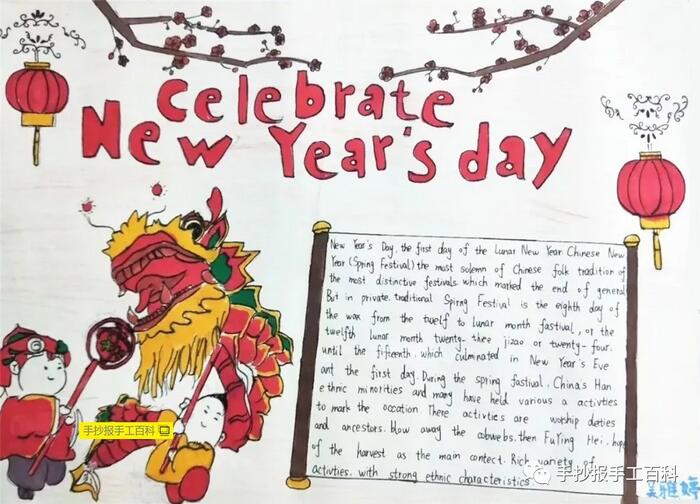 Celebrate
New Year's day
New Year's Day, the first day of the Lunar New Year Chinese New
Year (Spring Festival) the most solemn of Chinese folk tradition of
the most distinctive festivals which marked the end of general
But in private traditional Spirng Festival is the eighth day of
the wax from the twelf to lunar month fastival, or the
twelfth lunar month twenty-thee jizao or twenty-four.
until the fifteenth. which culminated in New Year's Eve
ant the first day. During the spring fastival, China's Han
ethnic minorities and many have held various a activties
to mark the occation. There activties are worship deties
and ancestors. blow away the cobwebs. then FuYing Hei. hope
of the harvest as the main contect. Rich variety of
activties. with strong ethnic characteristics
手抄报手工百科
手抄报手工百科